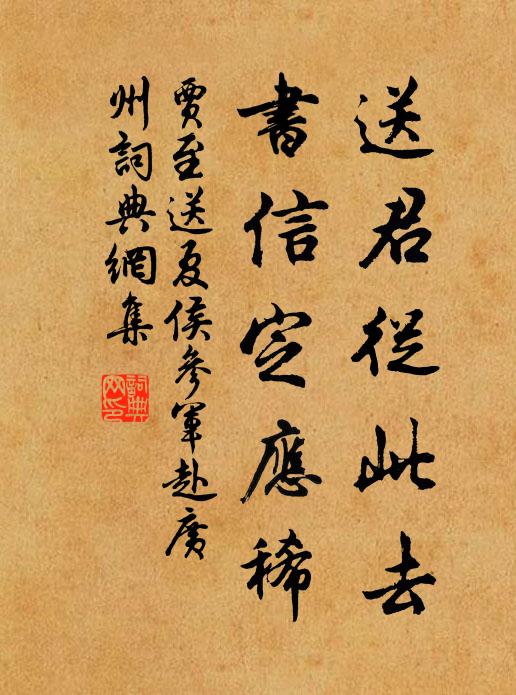 送君從此去
書信定應稀
賈至送夏侯參軍赴廣
州詞典網集
詞典網印